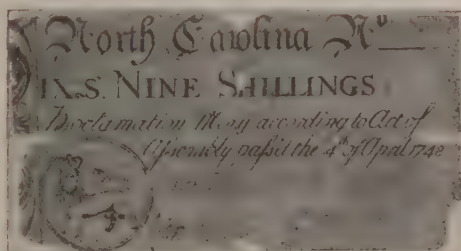 North Carolina No
IX.S. NINE SHILLINGS
Proclamation Mony according to Act of
Assembly passit the 4th of April 1748